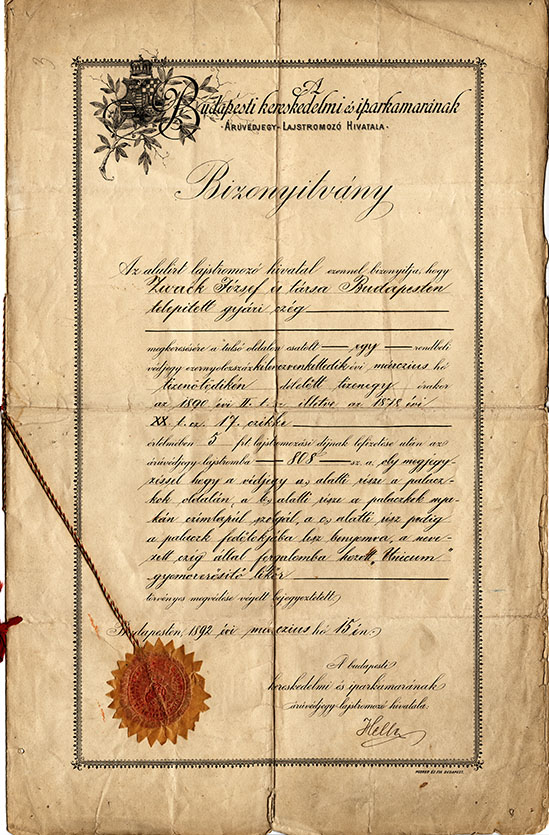 3
A
Budapesti kereskedelmi és iparkamarának
Árúvédjegy-Lajstromozó Hivatala.
Bizonyitvány
Az alulirt lajstromozó hivatal ezennel bizonyitja, hogy
Zwack József és társa Budapesten
telepitett gyári czég
megkeresésére a tulsó oldalon csatolt — egy — rendbeli
védjegy ezernyolczszázkilenczvenkettedik évi márczius hó
tizenötödikén délelőtt tizenegy órakor
az 1890 évi II. t. cz. illetve az 1878 évi
XX t. cz. 17. czikke
értelmében 5 frt lajstromozási díjnak lefizetése után az
árúvédjegy-lajstromba — 808 — sz. a. oly megjegy-
zéssel hogy a védjegy a, alatti része a palacz-
kok oldalán, a b, alatti része a palaczkok nya-
kán czimlapúl szogál, a c, alatti rész pedig
a palaczk fedélékjába lesz benyomva, a neve-
zett czég által forgalomba hozott „Unicum"
gyomorerősitő likőr
törvényes megvédése végett béjegyeztetett.
Budapesten, 1892 évi márczius hó 15 én.
A budapesti
kereskedelmi és iparkamarának
árúvédjegy-lajstromozó hivatala.
BUDAPEST.